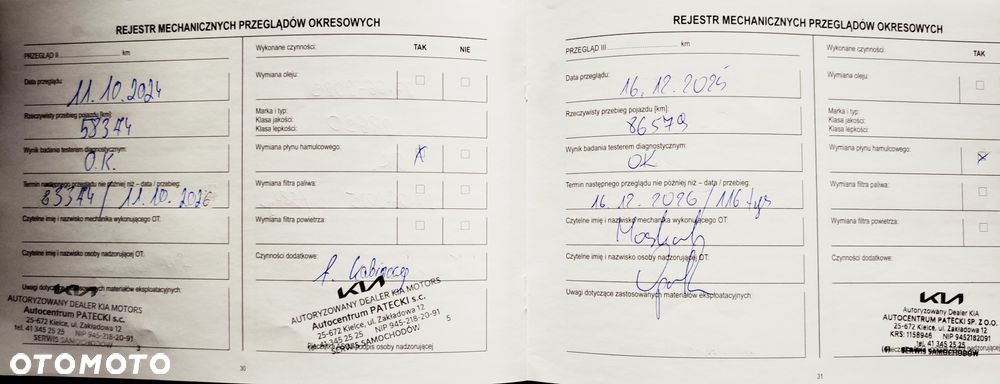 REJESTR MECHANICZNYCH PRZEGLĄDÓW OKRESOWYCH
PRZEGLĄD II km
Data przeglądu:
11.10.2024
Rzeczywisty przebieg pojazdu [km]:
58374
Wynik badania testerem diagnostycznym:
O.K.
Termin następnego przeglądu nie później niż – data / przebieg:
83374 / 11.10.2026
Czytelne imię i nazwisko mechanika wykonującego OT:
Czytelne imię i nazwisko osoby nadzorującej OT:
Uwagi dotyczące zastosowanych materiałów eksploatacyjnych:
KIA
AUTORYZOWANY DEALER KIA MOTORS
Autocentrum PATECKI s.c.
25-672 Kielce, ul. Zakładowa 12
tel. 41 345 25 25 NIP 945-218-20-91
SERWIS SAMOCHODÓW
Wykonane czynności: TAK NIE
Wymiana oleju:
Marka i typ:
Klasa jakości:
Klasa lepkości:
Wymiana płynu hamulcowego: X
Wymiana filtra paliwa:
Wymiana filtra powietrza:
Czynności dodatkowe:
KIA
AUTORYZOWANY DEALER KIA MOTORS
Autocentrum PATECKI s.c.
25-672 Kielce, ul. Zakładowa 12
tel. 41 345 25 25 NIP 945-218-20-91
SERWIS SAMOCHODÓW 5
podpis osoby nadzorującej
30
REJESTR MECHANICZNYCH PRZEGLĄDÓW OKRESOWYCH
PRZEGLĄD III km
Data przeglądu:
16.12.2025
Rzeczywisty przebieg pojazdu [km]:
86579
Wynik badania testerem diagnostycznym:
OK
Termin następnego przeglądu nie później niż – data / przebieg:
16.12.2026 / 116 tys
Czytelne imię i nazwisko mechanika wykonującego OT:
Czytelne imię i nazwisko osoby nadzorującej OT:
Uwagi dotyczące zastosowanych materiałów eksploatacyjnych:
Wykonane czynności: TAK
Wymiana oleju:
Marka i typ:
Klasa jakości:
Klasa lepkości:
Wymiana płynu hamulcowego: X
Wymiana filtra paliwa:
Wymiana filtra powietrza:
Czynności dodatkowe:
KIA
Autoryzowany Dealer KIA
AUTOCENTRUM PATECKI SP. Z O.O.
25-672 Kielce, ul. Zakładowa 12
KRS: 1158946 NIP 9452182091
tel. 41 345 25 25
SERWIS SAMOCHODÓW
31
OTOMOTO